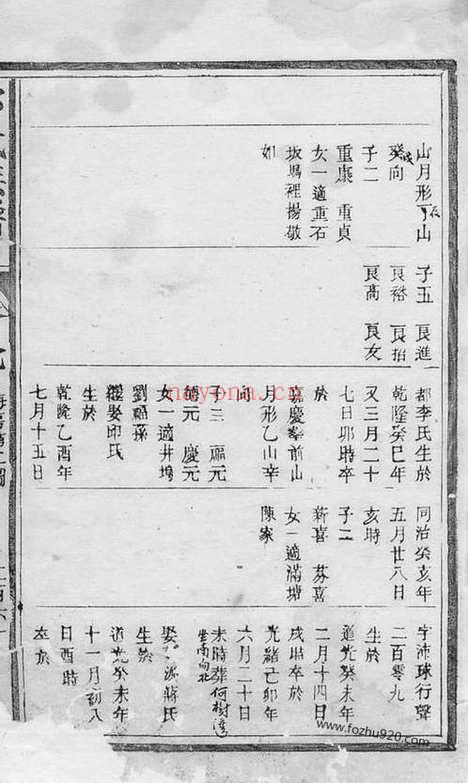 山月形丁山
癸向
子二
重康 重貞
女一適重石
坂塢裡楊敬
如
子五 良進
良裕 良招
良高 良友
都李氏生於
乾隆癸巳年
又三月二十
七日卯時卒
於
嘉慶 前山
月形乙山辛
向
子三 福元
德元 慶元
女一適井塢
劉福孫
繼娶邱氏
生於
乾隆乙酉年
七月十五日
同治癸亥年
五月廿八日
亥時
子二
新喜 芬喜
女一適滿塘
陳家
字沛球行聲
二百零九
生於
道光癸未年
二月十四日
戌時卒於
光緒己卯年
六月二十日
未時葬何樹灣
坐南向北
娶 源蔣氏
生於
道光癸未年
十一月初八
日酉時
卒於
nayona.cn
www.fozhu920.com